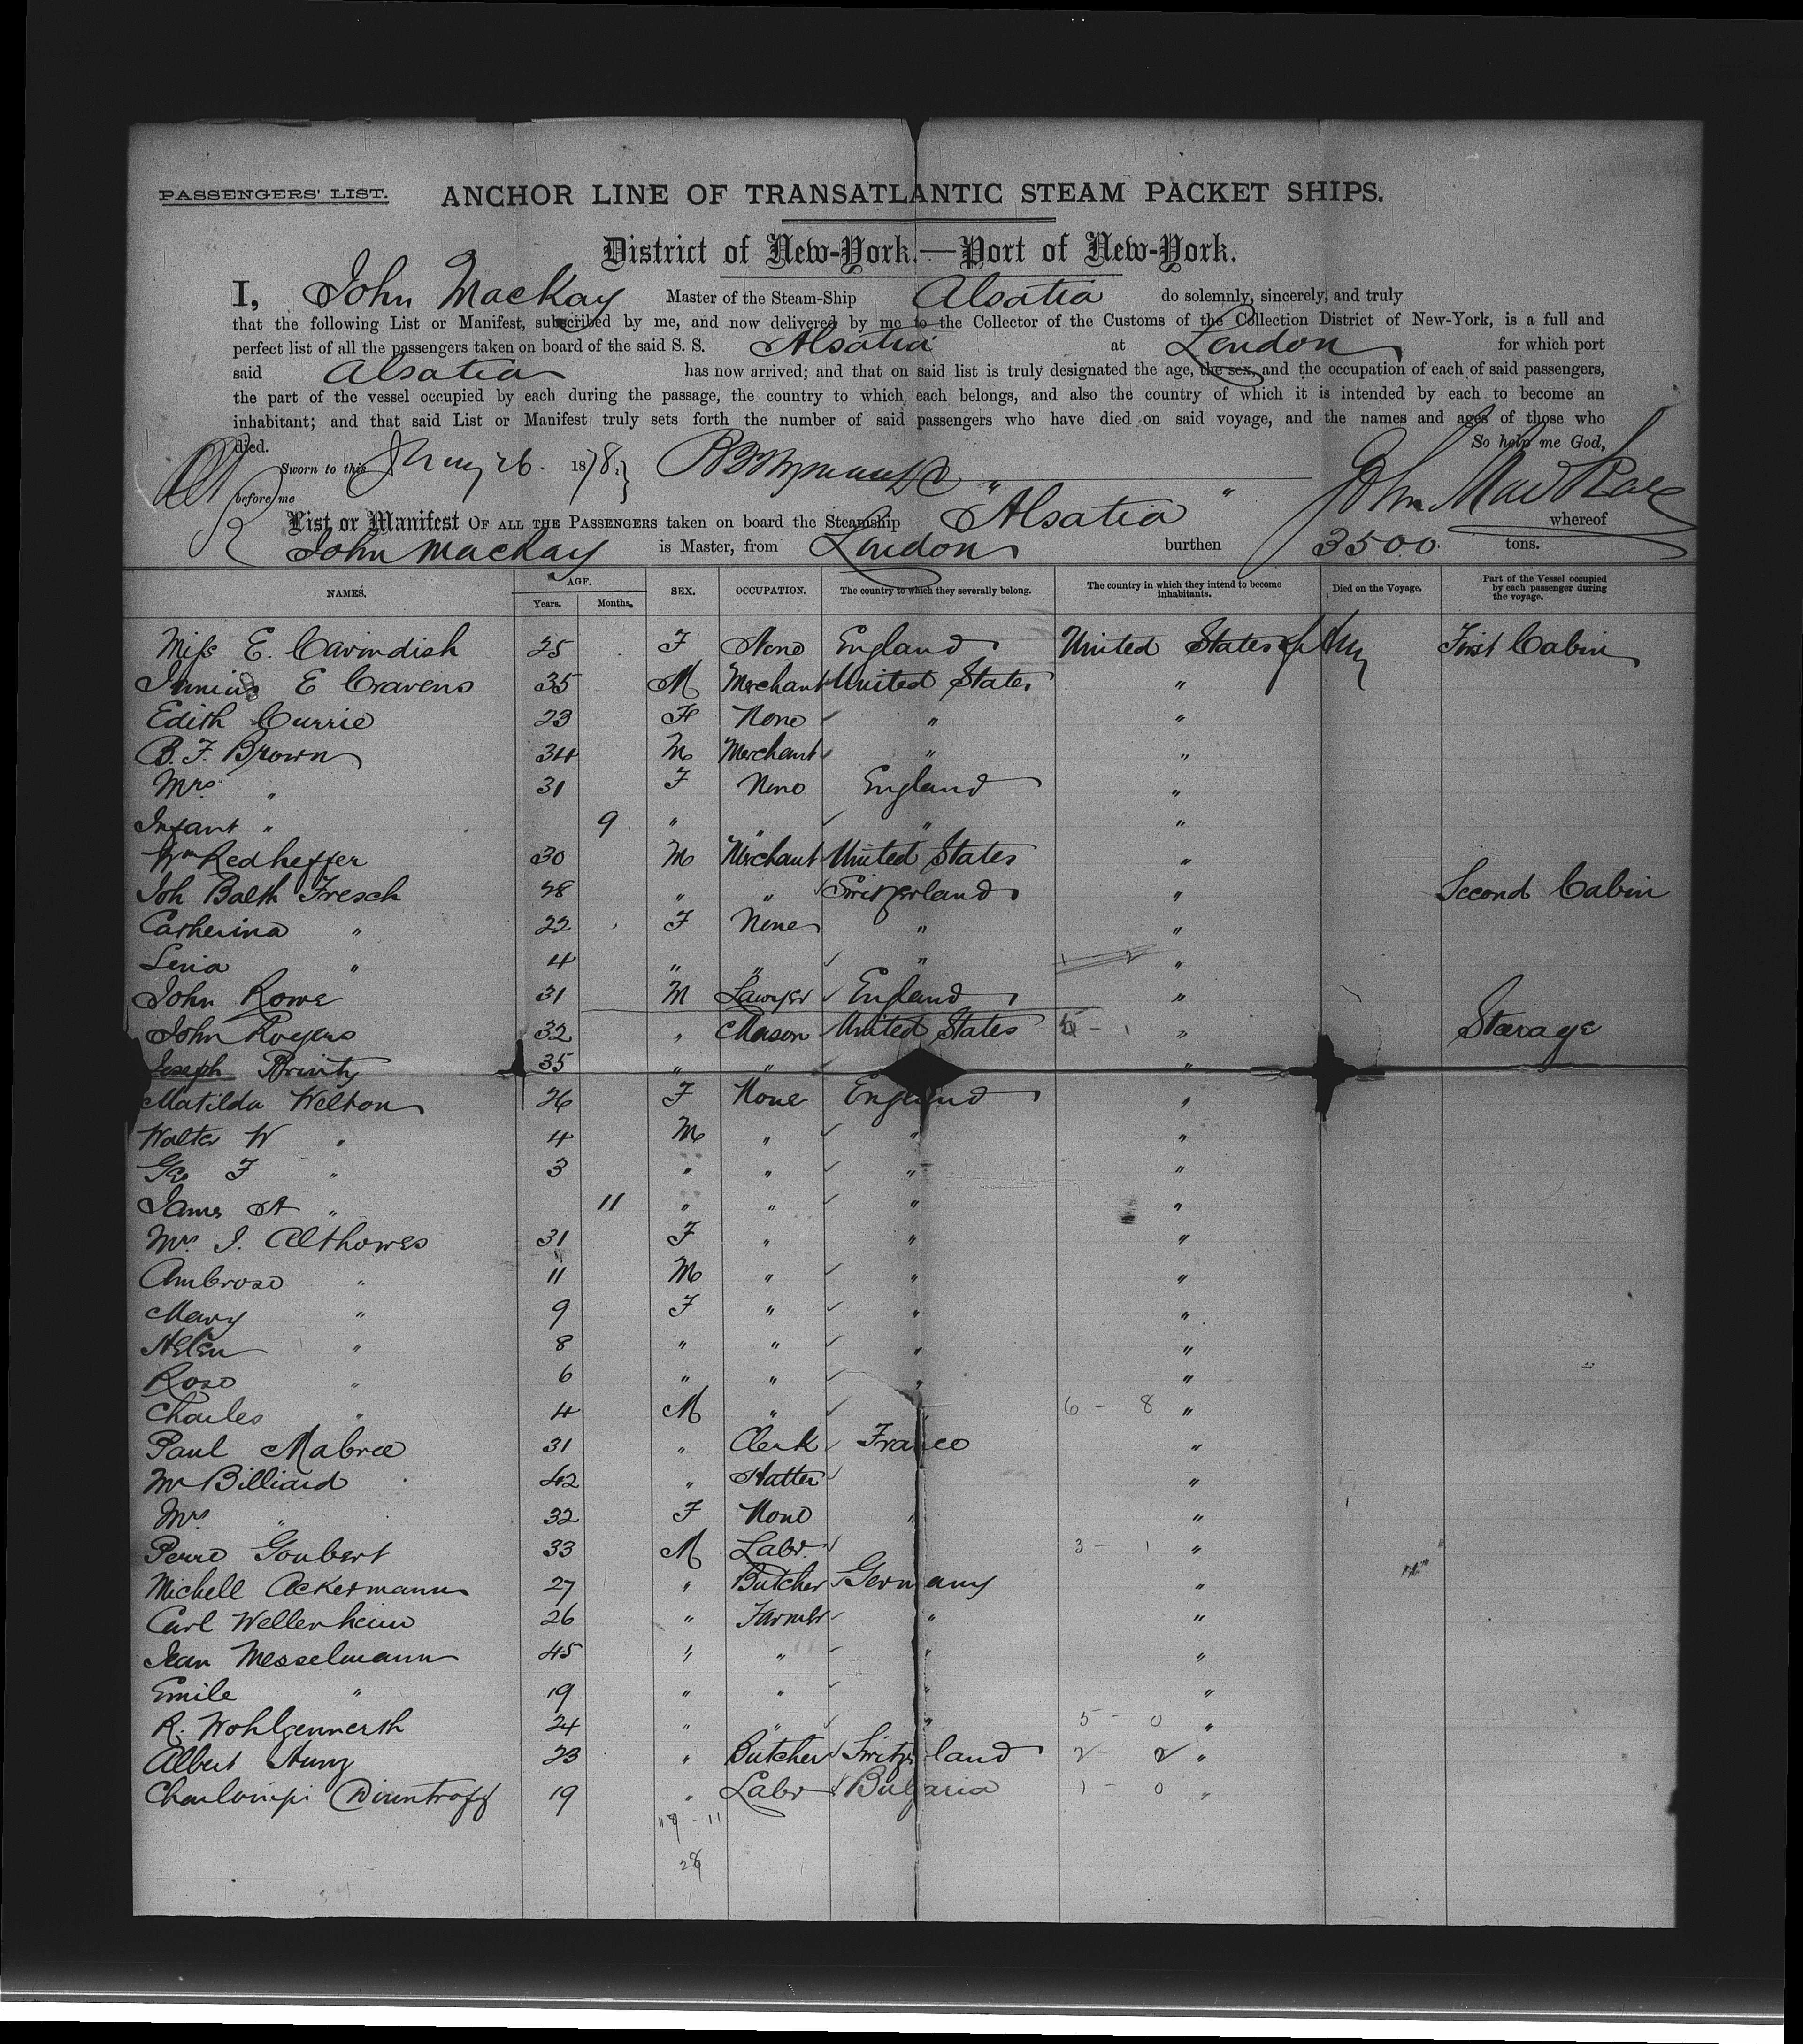 PASSENGERS' LIST. ANCHOR LINE OF TRANSATLANTIC STEAM PACKET SHIPS.
District of New-York.—Port of New-York.
I, John Mackay Master of the Steam-Ship Alsatia do solemnly, sincerely, and truly
that the following List or Manifest, subscribed by me, and now delivered by me to the Collector of the Customs of the Collection District of New-York, is a full and
perfect list of all the passengers taken on board of the said S. S. Alsatia at London for which port
said Alsatia has now arrived; and that on said list is truly designated the age, the sex, and the occupation of each of said passengers,
the part of the vessel occupied by each during the passage, the country to which each belongs, and also the country of which it is intended by each to become an
inhabitant; and that said List or Manifest truly sets forth the number of said passengers who have died on said voyage, and the names and ages of those who
died. So help me God,
Sworn to this 26. 1878.
before me John MacKay
List or Manifest OF ALL THE PASSENGERS taken on board the Steamship Alsatia whereof
John Mackay is Master, from London burthen 3500 tons.
NAMES. AGE. Years. Months. SEX. OCCUPATION. The country to which they severally belong. The country in which they intend to become inhabitants. Died on the Voyage. Part of the Vessel occupied by each passenger during the voyage.
Miss E. Cavindish 25 F None England United States of First Cabin
Junius E Cravens 35 M Merchant United States "
Edith Currie 23 F None " "
B. F. Brown 34 M Merchant " "
Mrs " 31 F None England "
Infant " 9 " " " "
Wm Redheffer 30 M Merchant United States "
Joh Balth Fresch 28 " " Switzerland " Second Cabin
Catherina " 22 F None " "
Lena " 4 " " " "
John Rowe 31 M Lawyer England "
John Rogers 32 " Mason United States 1 " Steerage
Joseph 35 " " "
Matilda Welton 26 F None England "
Walter W " 4 M " " "
Geo F " 3 " " " "
James A " 11 " " " "
Mrs. J. Althowes 31 F " " "
Ambrose " 11 M " " "
Mary " 9 F " " "
Helen " 8 " " " "
Rose " 6 " " " "
Charles " 4 M " " 6 - 8 "
Paul Mabree 31 " Clerk France "
Mr Billiard 42 " Hatter "
Mrs " 32 F None " "
Perre Goubert 33 M Labr. 3 - 1 "
Michell Ackermann 27 " Butcher Germany "
Carl Wellenheim 26 " Farmer " "
Jean Messelmann 45 " " " "
Emile " 19 " " " "
R. Wohlgennerth 24 " " " 5 - 0 "
Albert Hunz 23 " Butcher Switzerland 2 - 2 "
19 " Labr Bulgaria 1 - 0 "
28